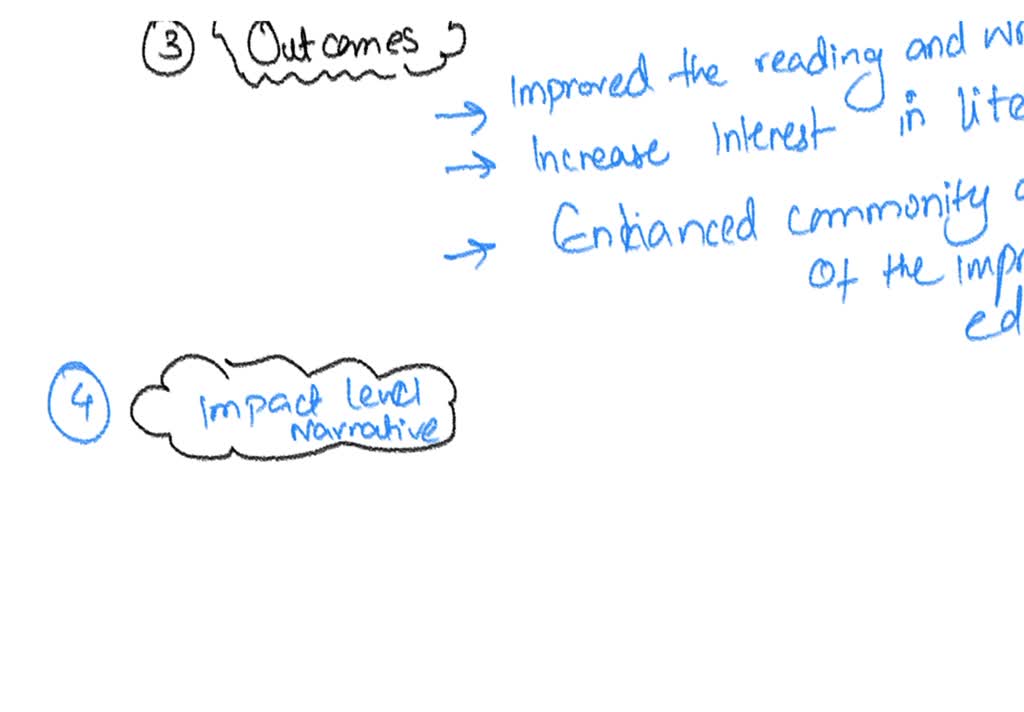 3 Outcomes
→ Improved the reading and
→ Increase Interest in
→ Enhanced commonity
of the
4 Impact Level
Narrative